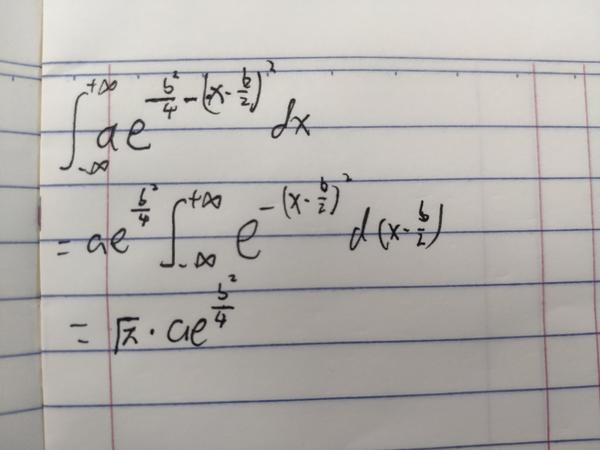 ∫_{-∞}^{+∞} a e^{-\frac{b^2}{4} - (x - \frac{b}{2})^2} dx
= a e^{\frac{b^2}{4}} ∫_{-∞}^{+∞} e^{-(x - \frac{b}{2})^2} d(x - \frac{b}{2})
= √π · a e^{\frac{b^2}{4}}